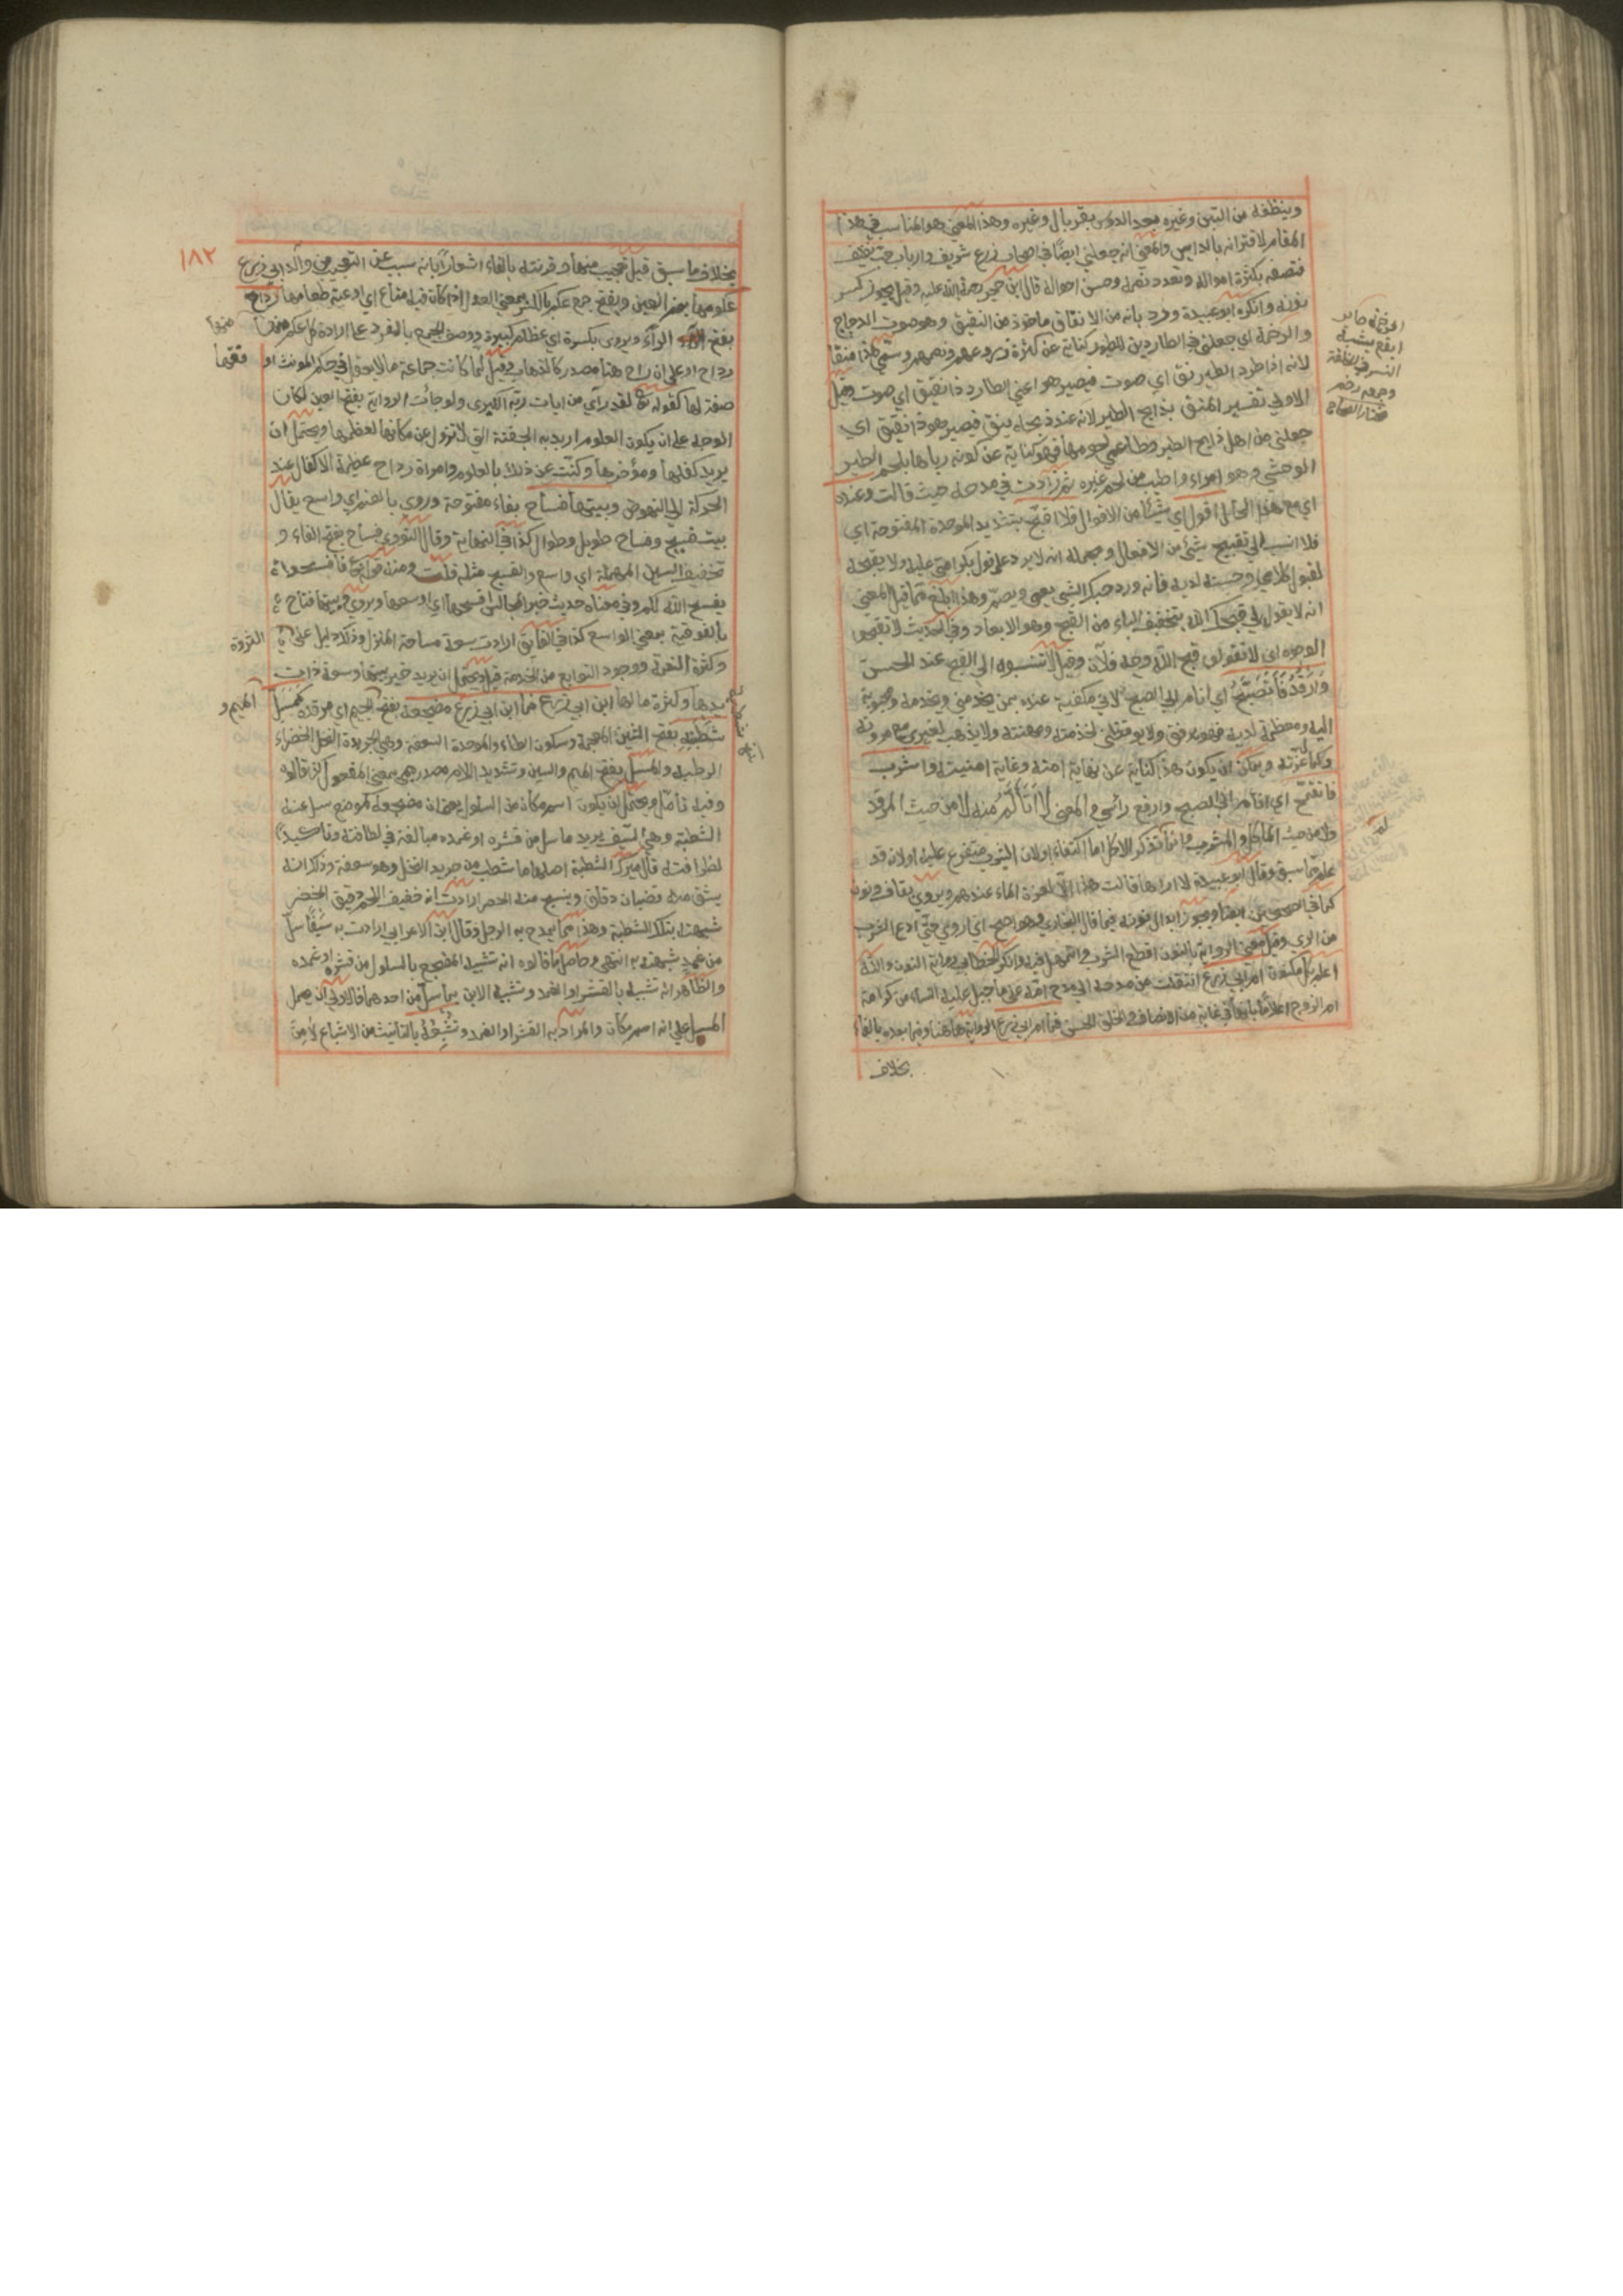 وينظفه من التبن وغيره بعد الدوس بغربال وغيره وهذا المعنى هو المناسب في هذا
المقام لاقترانه بالدايس والمعنى انه جعلني ايضا في اصحاب زرع شريف وارباب حب نظيف
فتصفه بكثرة امواله وتعدد نعمه وحسن احواله قال ابن حجر رحمة الله عليه وقيل يجوز كسر
نونه وانكره ابو عبيدة ورد بانه من الانقاق ماخوذ من النقيق وهو صوت الدجاج
والرخمة اي جعلني في الطاردين للطيور كناية عن كثرة زروعهم ونعمهم وسمي هذا منقا
لانه اذا طرد الطير نق اي صوت فيصير هو اعني الطارد ذا نقيق اي صوت وقيل
الاولى تفسير المنق بذابح الطير لانه عند ذبحه ينق فيصير هو ذا نقيق اي
جعلني من اهل ذابح الطير وطاعمي لحومها فهو كناية عن كونه رباها بلحم الطير
الوحشي وهو امراء واطيب من لحم غيره ثم زادت في مدحه حيث قالت وعنده
اي مع هذا الحال اقول اي شيئا من الاقوال فلا اقبح بتشديد الموحدة المفتوحة اي
فلا انسب الى تقبيح شئ من الافعال ومجمله انه لا يرد على قول بكرامتي عليه ولا يقبحه
لقبول كلامي وحسنه لديه فانه ورد حبك الشي يعمي ويصم وهذا ابلغ مما قيل المعنى
انه لا يقول لي قبحك الله بتخفيف الباء من القبح وهو الابعاد وفي الحديث لا تقبحوا
الوجوه اي لا تقولوا قبح الله وجه فلان وقيل لا تنسبوه الى القبح عند الحسن
وَارْقُدُ فَأَتَصَبَّحُ اي انام الى الصبح لاني مكفية عنده بمن يخدمني ويخدمه ومحبوبة
اليه ومعظمة لديه فهو يرفق ولا يوقظني لخدمته ومهنته ولا يذهب لغيري مع مروته
وكمال عزته ويمكن ان يكون هذا كناية عن نهاية امنه وغاية امنيته واشرب
فاتقمح اي انام الى الصبح وارفع راسي والمعنى لا اَتَأَلَّمُ منه لا من حيث المرقد
ولا من حيث الماكل والمشرب وانما تذكر الاكل اما اكتفاء او لان الشرب متفرع عليه او لان قد
علم مما سبق وقال ابو عبيدة لا اراها قالت هذا الا لعزة الماء عندهم ويروى بقاف ونون
كما في الصحيحين ايضا ويجوز ابدال نونه ميما قال البخاري وهو اصح اي اروي حتى ادع الشرب
من الري وقيل معنى الرواية بالنون اقطع الشرب واتمهل فيه وانكر الخطابي رواية النون والله
اعلم بكل مكنون ام ابي زرع انتقلت من مدحه الى مدح امه على ما جبل عليه النساء من كراهة
ام الزوج اعلاما بانها في غاية من الانصاف والخلق الحسن فما ام ابي زرع الرواية ههنا وفيما بعده بالفاء
بخلاف
الرخمة طاير
ابقع يشبه
النسر في الخلقة
وجمعه رخم
مختار الصحاح
١٨٢
بخلاف ما سبق قيل تعجبت منها وقرنته بالفاء اشعارا بانه سبب عن التعجب من والد ابي زرع
عكومها بضم العين ويفتح جمع عكم بالكسر بمعنى العدل اذا كان فيه متاع اي اوعية طعامها رداح
بفتح الراء ويروى بكسره اي عظام كبيرة ووصف الجمع بالمفرد على ارادة كل عكم منها
رداح او على ان رداح هنا مصدر كالذهاب وقيل لما كانت جماعة ما لا يعقل في حكم المونث او
صفة لها كقوله تعالى لقد رآى من ايات ربه الكبرى ولو جائت الرواية بفتح العين لكان
الوجه على ان يكون العكوم اريد به الجفنة التي لا تزول عن مكانها لعظمها ويحتمل ان
يريد كفلها ومؤخرها وكنت عن ذلك بالعكوم وامراة رداح عظيمة الاكفال عند
الحركة الى النهوض وبيتها فساح بفاء مفتوحة وروي بالضم اي واسع يقال
بيت فسيح وفساح طويل وطوال كذا في النهاية وقال النووي فساح بفتح الفاء و
تخفيف السين المهملة اي واسع والفسيح مثله قلت ومنه قوله تعالى فافسحوا
يفسح الله لكم وفي معناه حديث خير المجالس افسحها اي اوسعها ويروى وبيتها فتاح
بالفوقية بمعنى الواسع كذا في الفايق ارادت سعة مساحة المنزل وذلك دليل على
الثروة
وكثرة النعمة ووجود التوابع من الخدمة قيل ويحتمل ان يريد خير بيتها وسعة ذات
يدها وكثرة مالها ابن ابي زرع فما ابن ابي زرع مضجعه بفتح الجيم اي مرقده كَمَسَلِّ
الميم و
شَطْبَةٍ بفتح الشين المعجمة وسكون الطاء والموحدة السعفة وهي الجريدة النخل الخضراء
الرطبة والمسل بفتح الميم والسين وتشديد اللام مصدر ميمي بمعنى المفعول كذا قالوه
وفيه تأمل ويحتمل ان يكون اسم مكان من السلول يعني ان مضجعه كموضع سل عنه
الشطبة وهي السيف يريد ما سل من قشره او غمده مبالغة في لطافته وتاكيدا
لظرافته قال ميرك الشطبة اصلها ما شطب من جريد النخل وهو سعفه وذلك انه
يشق منه قضبان دقاق وينسج منه الحصر ارادت انه خفيف اللحم دقيق الخصر
شبهته بتلك الشطبة وهذا مما يمدح به الرجل وقال ابن الاعرابي ارادت به سَيْفًا سل
من غمد شبهته به انتهى وحاصل ما قالوه انه تشبيه المضجع بالمسلول من قشره او غمده
والظاهر انه تشبيه بالقشر او الغمد وتشبيه الابن بما سل من احدهما فالاولى ان يحمل
المسل على انه اسم مكان والمراد به القشر او الغمد وتُشْبِعُهُ بالتانيث من الاشباع لأمن